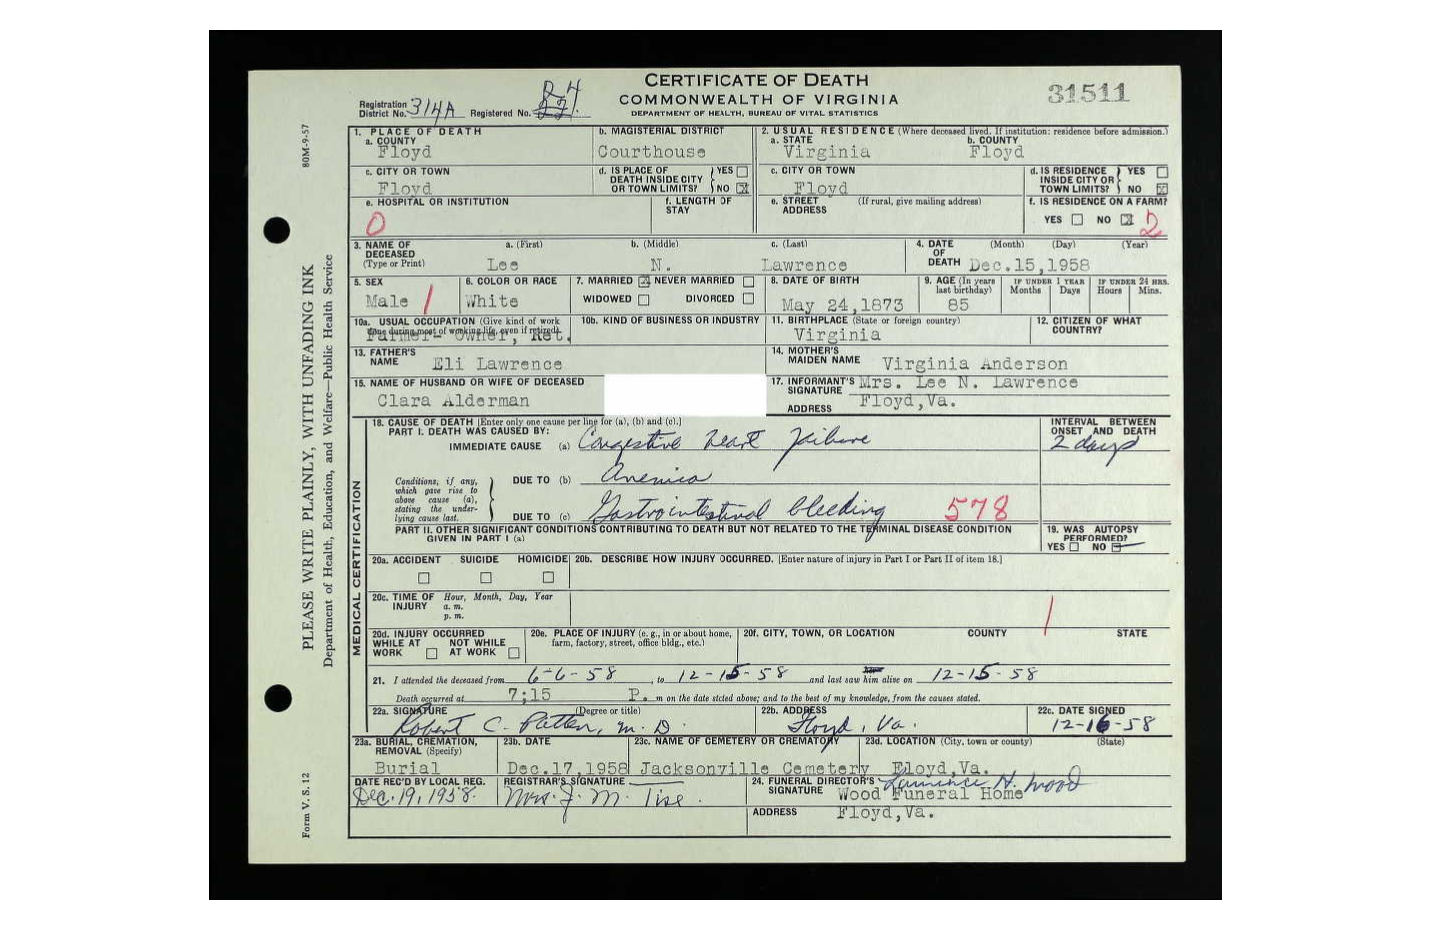 CERTIFICATE OF DEATH
COMMONWEALTH OF VIRGINIA
DEPARTMENT OF HEALTH, BUREAU OF VITAL STATISTICS
31511
Registration District No. 314A Registered No.
80M-9-57
PLEASE WRITE PLAINLY, WITH UNFADING INK
Department of Health, Education, and Welfare—Public Health Service
Form V. S. 12
1. PLACE OF DEATH
a. COUNTY
Floyd
b. MAGISTERIAL DISTRICT
Courthouse
2. USUAL RESIDENCE (Where deceased lived. If institution: residence before admission.)
a. STATE
Virginia
b. COUNTY
Floyd
c. CITY OR TOWN
Floyd
d. IS PLACE OF DEATH INSIDE CITY OR TOWN LIMITS? YES NO
c. CITY OR TOWN
Floyd
d. IS RESIDENCE INSIDE CITY OR TOWN LIMITS? YES NO
e. HOSPITAL OR INSTITUTION
0
f. LENGTH OF STAY
e. STREET ADDRESS (If rural, give mailing address)
f. IS RESIDENCE ON A FARM?
YES NO 2
3. NAME OF DECEASED
(Type or Print)
a. (First) b. (Middle) c. (Last)
Lee N. Lawrence
4. DATE OF DEATH (Month) (Day) (Year)
Dec.15,1958
5. SEX
Male 1
6. COLOR OR RACE
White
7. MARRIED NEVER MARRIED
WIDOWED DIVORCED
8. DATE OF BIRTH
May 24,1873
9. AGE (In years last birthday)
85
IF UNDER 1 YEAR
Months Days
IF UNDER 24 HRS.
Hours Mins.
10a. USUAL OCCUPATION (Give kind of work done during most of working life, even if retired)
Farmer- owner, Ret.
10b. KIND OF BUSINESS OR INDUSTRY
11. BIRTHPLACE (State or foreign country)
Virginia
12. CITIZEN OF WHAT COUNTRY?
13. FATHER'S NAME
Eli Lawrence
14. MOTHER'S MAIDEN NAME
Virginia Anderson
15. NAME OF HUSBAND OR WIFE OF DECEASED
Clara Alderman
17. INFORMANT'S SIGNATURE
Mrs. Lee N. Lawrence
ADDRESS
Floyd,Va.
MEDICAL CERTIFICATION
18. CAUSE OF DEATH [Enter only one cause per line for (a), (b) and (c).]
PART I. DEATH WAS CAUSED BY:
IMMEDIATE CAUSE (a) Congestive heart failure
INTERVAL BETWEEN ONSET AND DEATH
2 days
Conditions, if any, which gave rise to above cause (a), stating the underlying cause last.
DUE TO (b) Anemia
DUE TO (c) Gastrointestinal bleeding 578
PART II. OTHER SIGNIFICANT CONDITIONS CONTRIBUTING TO DEATH BUT NOT RELATED TO THE TERMINAL DISEASE CONDITION GIVEN IN PART I (a)
19. WAS AUTOPSY PERFORMED?
YES NO
20a. ACCIDENT SUICIDE HOMICIDE
20b. DESCRIBE HOW INJURY OCCURRED. [Enter nature of injury in Part I or Part II of item 18.]
20c. TIME OF INJURY Hour, Month, Day, Year
a. m.
p. m.
1
20d. INJURY OCCURRED
WHILE AT WORK NOT WHILE AT WORK
20e. PLACE OF INJURY (e. g., in or about home, farm, factory, street, office bldg., etc.)
20f. CITY, TOWN, OR LOCATION COUNTY STATE
21. I attended the deceased from 6-6-58, to 12-15-58 and last saw him alive on 12-15-58
Death occurred at 7;15 P. m on the date stated above; and to the best of my knowledge, from the causes stated.
22a. SIGNATURE (Degree or title)
Robert C. Patten, M. D.
22b. ADDRESS
Floyd, Va.
22c. DATE SIGNED
12-16-58
23a. BURIAL, CREMATION, REMOVAL (Specify)
Burial
23b. DATE
Dec.17,1958
23c. NAME OF CEMETERY OR CREMATORY
Jacksonville Cemetery
23d. LOCATION (City, town or county) (State)
Floyd,Va.
DATE REC'D BY LOCAL REG.
Dec. 19, 1958.
REGISTRAR'S SIGNATURE
Mrs. J. M. Tise.
24. FUNERAL DIRECTOR'S SIGNATURE
Lawrence H. Wood
Wood Funeral Home
ADDRESS
Floyd,Va.